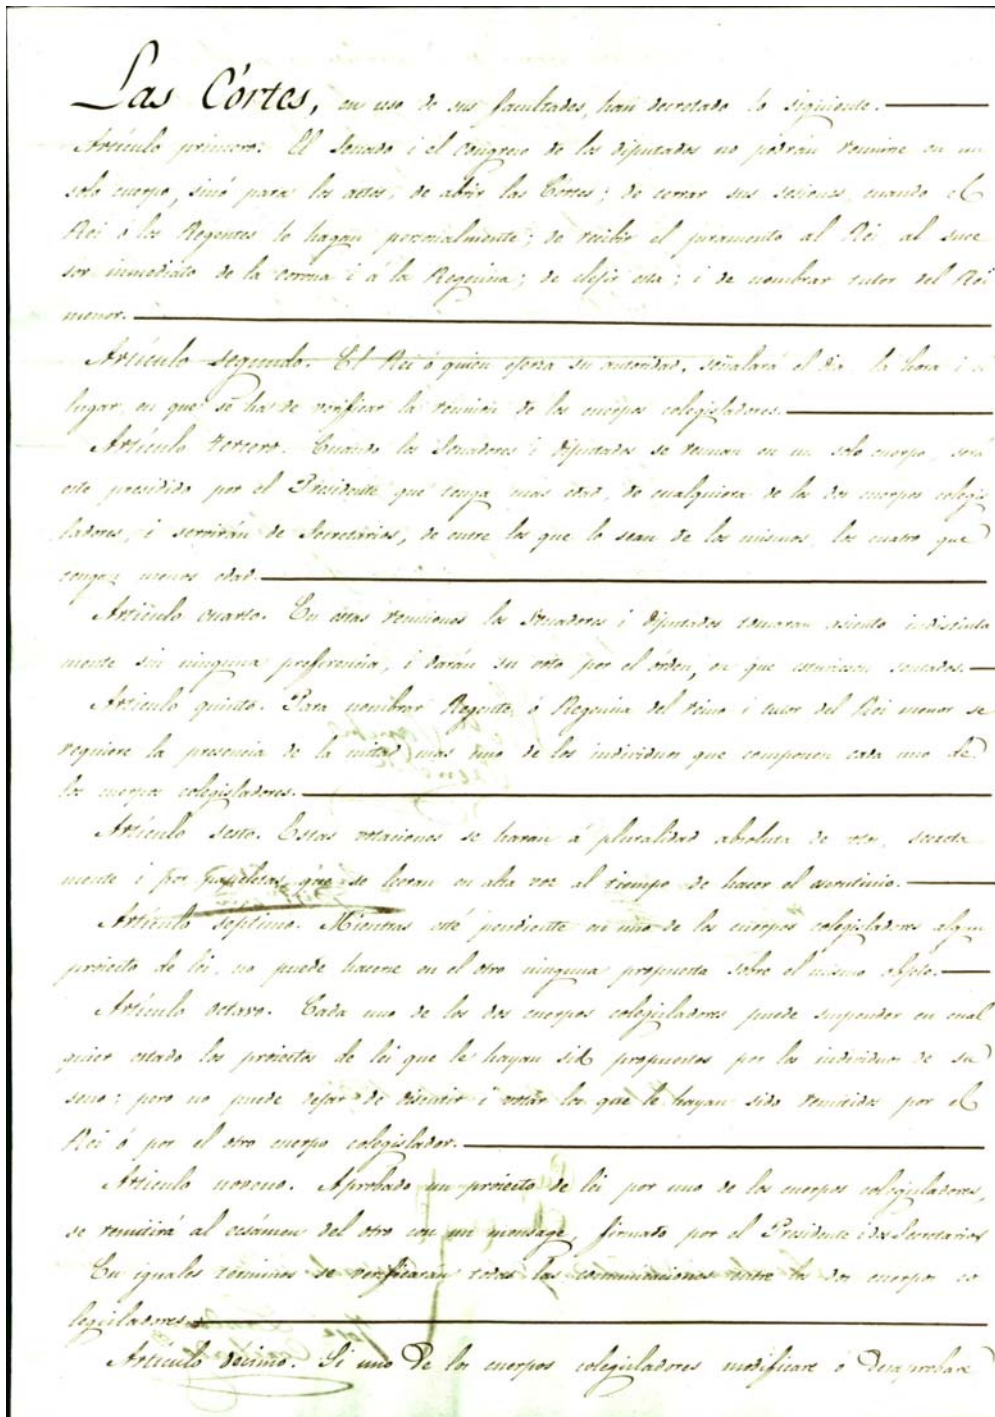 Las Córtes, en uso de sus facultades, han decretado lo siguiente.
Artículo primero. El Senado i el Congreso de los diputados no podrán reunirse en un
solo cuerpo, sinó para los actos, de abrir las Córtes; de cerrar sus sesiones, cuando el
Rei ó los Regentes lo hagan personalmente; de recibir el juramento al Rei al suce
sor inmediato de la corona i á la Regencia; de elejir esta; i de nombrar tutor del Rei
menor.
Artículo segundo. El Rei ó quien ejerza su autoridad, señalará el dia la hora i el
lugar, en que se ha de verificar la reunion de los cuerpos colegisladores.
Artículo tercero. Cuando los Senadores i diputados se reunan en un solo cuerpo, será
este presidido por el Presidente que tenga mas edad, de cualquiera de los dos cuerpos colegis
ladores, i servirán de Secretários, de entre los que lo sean de los mismos, los cuatro que
tengan menos edad.
Artículo cuarto. En estas reuniones los Senadores i diputados tomaran asiento indistinta
mente sin ninguna preferencia, i darán su voto por el órden, en que estuviesen sentados.
Artículo quinto. Para nombrar Regente, ó Regencia del reino i tutor del Rei menor se
requiere la presencia de la mitad mas uno de los individuos que componen cada uno de
los cuerpos colegisladores.
Artículo sesto. Estas votaciones se haran á pluralidad absoluta de votos, secreta
mente i por papeletas, que se leeran en alta voz al tiempo de hacer el escrutinio.
Artículo septimo. Mientras esté pendiente en uno de los cuerpos colegisladores algun
proiecto de lei, no puede hacerse en el otro ninguna propuesta sobre el mismo objeto.
Artículo octavo. Cada uno de los dos cuerpos colegisladores puede suspender en cual
quier estado los proiectos de lei que le hayan sido propuestos por los individuos de su
seno; pero no puede dejar de discutir i votar los que le hayan sido remitidos por el
Rei ó por el otro cuerpo colegislador.
Artículo noveno. Aprobado un proiecto de lei por uno de los cuerpos colegisladores,
se remitirá al ecsámen del otro con un mensage, firmado por el Presidente i dos Secretarios
En iguales términos se verificarán todas las comunicaciones entre los dos cuerpos co
legisladores.
Artículo décimo. Si uno de los cuerpos colegisladores modificare ó desaprobare